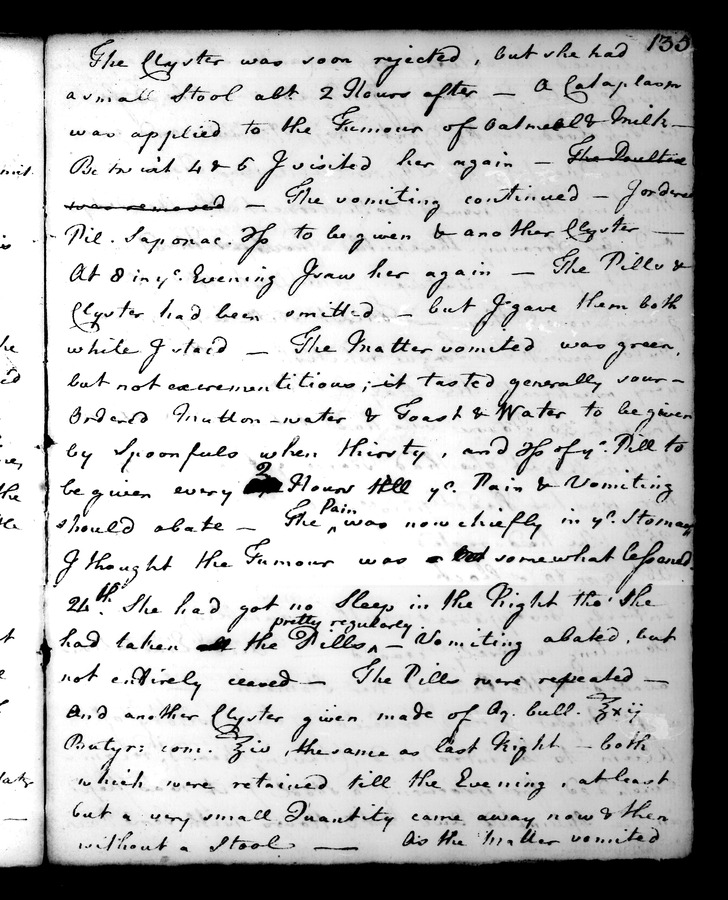 135
The Clyster was soon rejected, but she had
a small Stool abt. 2 Hours after — A Cataplasm
was applied to the Tumour of Oatmeal & Milk —
Betwixt 4 & 6 I visited her again — The Poultice
was removed — The vomiting continued — I ordered
Pil. Saponac. ʒſs to be given & another Clyster —
At 8 in ye. Evening I saw her again — The Pills &
Clyster had been omitted — but I gave them both
while I staid — The Matter vomited was green,
but not excrementitious; it tasted generally sour —
Ordered Mutton-water & Toast & Water to be given
by Spoonfuls when thirsty, and ʒſs of ye. Pill to
be given every 2 Hours till ye. Pain & Vomiting
should abate — The Pain was now chiefly in ye. Stomach
I thought the Tumour was somewhat lessened.
24th. She had got no Sleep in the Night tho' she
had taken the Pills pretty regularly — Vomiting abated, but
not entirely ceased — The Pills were repeated —
And another Clyster given made of Aq. bull. ℥xij
Butyr: com. ℥iv, the same as last Night — both
which were retained till the Evening, at least
but a very small Quantity came away now & then
without a Stool — As the Matter vomited